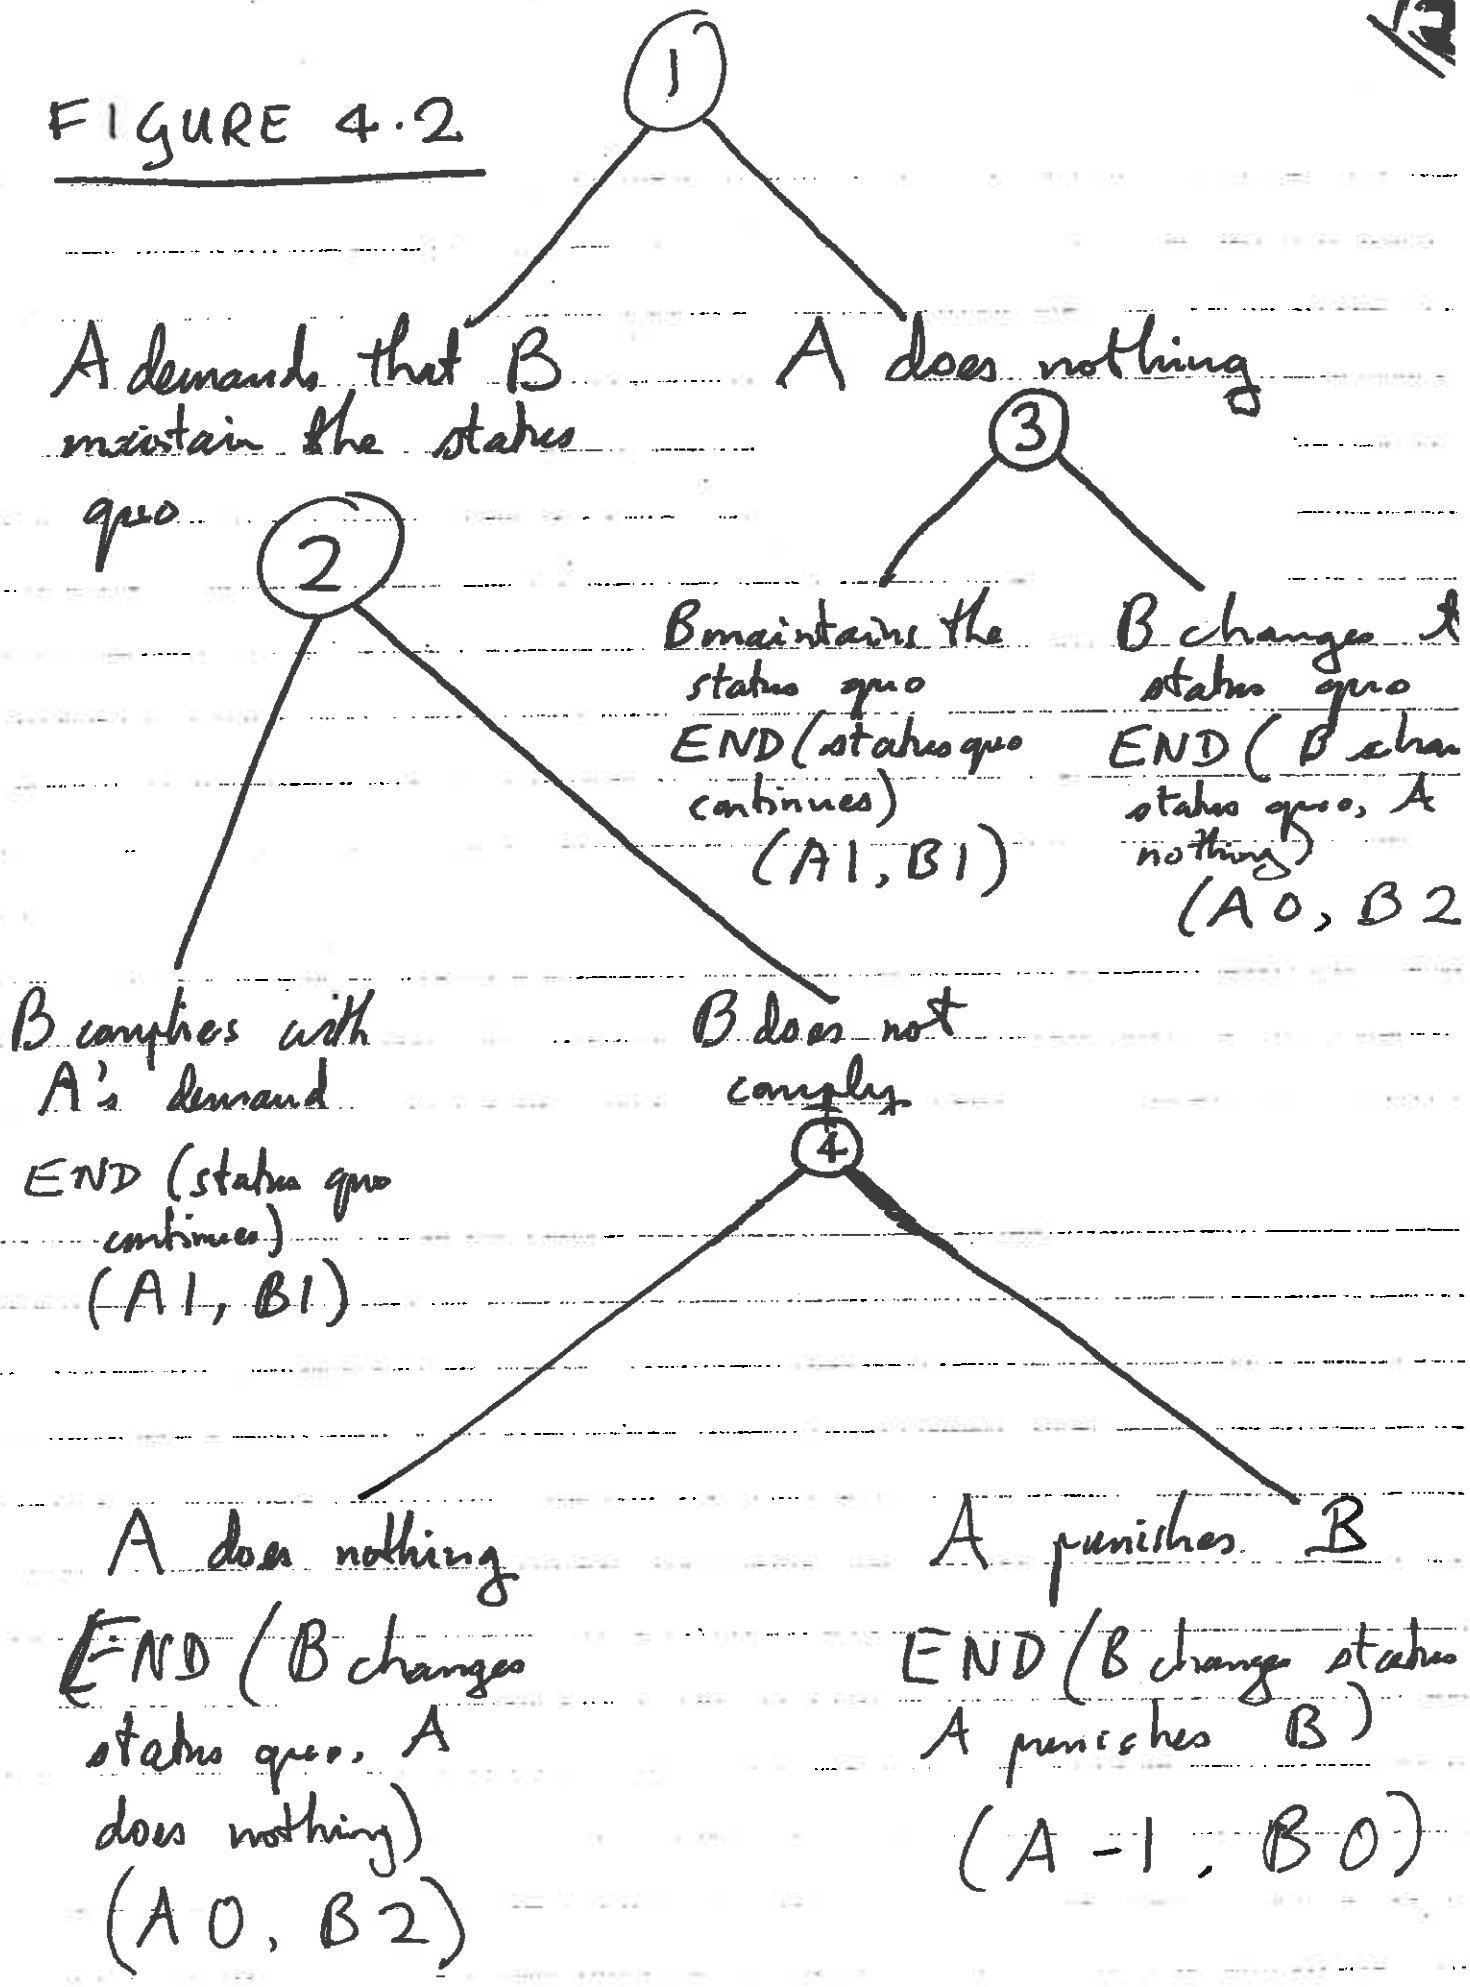 1
FIGURE 4.2
A demands that B
maintain the status
quo
A does nothing
2
3
B maintains the
status quo
END (status quo
continues)
(A1, B1)
B changes
status quo
END ( B
status quo, A
nothing)
(A 0, B 2
B complies with
A's demand
END (status quo
continues)
(A1, B1)
B does not
comply
4
A does nothing
END (B changes
status quo, A
does nothing)
(A 0, B 2)
A punishes B
END (B changes status
A punishes B)
(A -1, B 0)